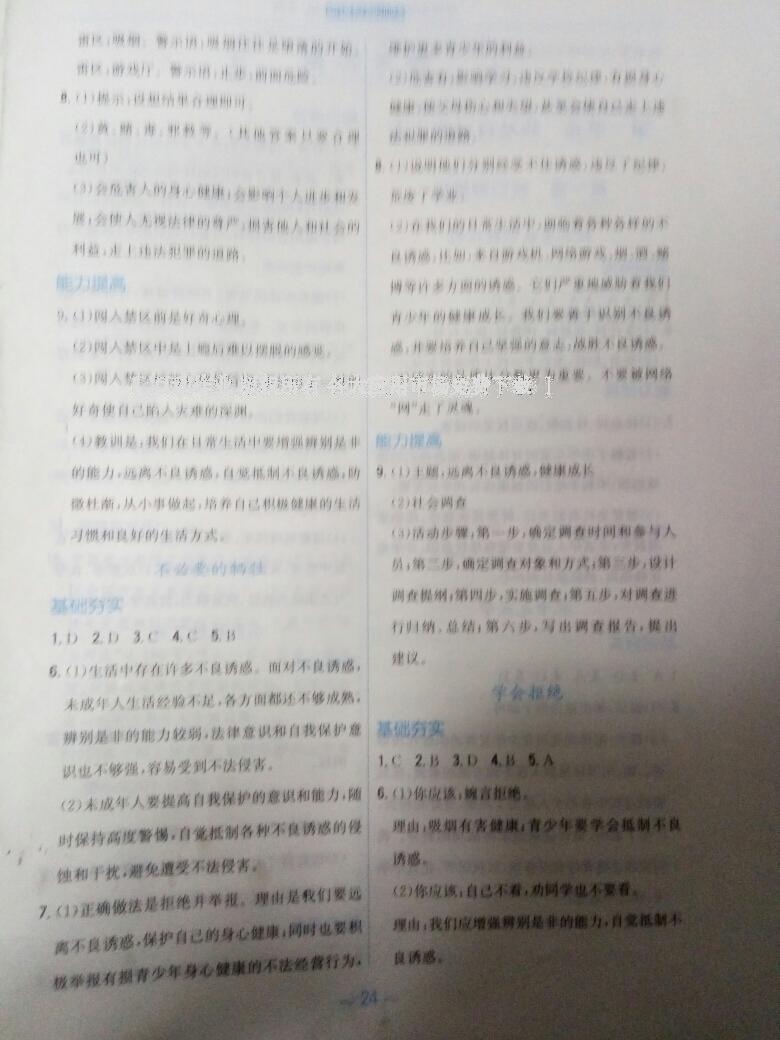 雷区:吸烟。警示语:吸烟往往是堕落的开始。
雷区:游戏厅。警示语:止步,前面危险。
8.(1)提示:设想结果合理即可。
(2)黄、赌、毒、邪教等。(其他答案只要合理
也可)
(3)会危害人的身心健康;会影响个人进步和发
展;会使人无视法律的尊严,损害他人和社会的
利益,走上违法犯罪的道路。
能力提高
9.(1)闯入禁区前是好奇心理。
(2)闯入禁区中是上瘾后难以摆脱的感觉。
(3)闯入禁区后
好奇使自己陷入灾难的深渊。
(4)教训是:我们在日常生活中要增强辨别是非
的能力,远离不良诱惑,自觉抵制不良诱惑,防
微杜渐,从小事做起,培养自己积极健康的生活
习惯和良好的生活方式。
不必要的牺牲
基础夯实
1.D 2.D 3.C 4.C 5.B
6.(1)生活中存在许多不良诱惑。面对不良诱惑,
未成年人生活经验不足,各方面都还不够成熟,
辨别是非的能力较弱,法律意识和自我保护意
识也不够强,容易受到不法侵害。
(2)未成年人要提高自我保护的意识和能力,随
时保持高度警惕,自觉抵制各种不良诱惑的侵
蚀和干扰,避免遭受不法侵害。
7.(1)正确做法是拒绝并举报。理由是我们要远
离不良诱惑,保护自己的身心健康;同时也要积
极举报有损青少年身心健康的不法经营行为,
维护更多青少年的利益。
(2)危害有:影响学习;违反学校纪律;有损身心
健康;使父母伤心和失望;甚至会使自己走上违
法犯罪的道路。
8.(1)说明他们分别经受不住诱惑,违反了纪律,
荒废了学业。
(2)在我们的日常生活中,面临着各种各样的不
良诱惑,比如:来自游戏机、网络游戏、烟、酒、赌
博等许多方面的诱惑。它们严重地威胁着我们
青少年的健康成长。我们要善于识别不良诱
惑,并要培养自己坚强的意志,战胜不良诱惑。
更为重要。不要被网络
“网”走了灵魂。
能力提高
9.(1)主题:远离不良诱惑,健康成长
(2)社会调查
(3)活动步骤:第一步,确定调查时间和参与人
员;第二步,确定调查对象和方式;第三步,设计
调查提纲;第四步,实施调查;第五步,对调查进
行归纳、总结;第六步,写出调查报告,提出
建议。
学会拒绝
基础夯实
1.C 2.B 3.D 4.B 5.A
6.(1)你应该:婉言拒绝。
理由:吸烟有害健康;青少年要学会抵制不良
诱惑。
(2)你应该:自己不看,劝同学也不要看。
理由:我们应增强辨别是非的能力,自觉抵制不
良诱惑。
24